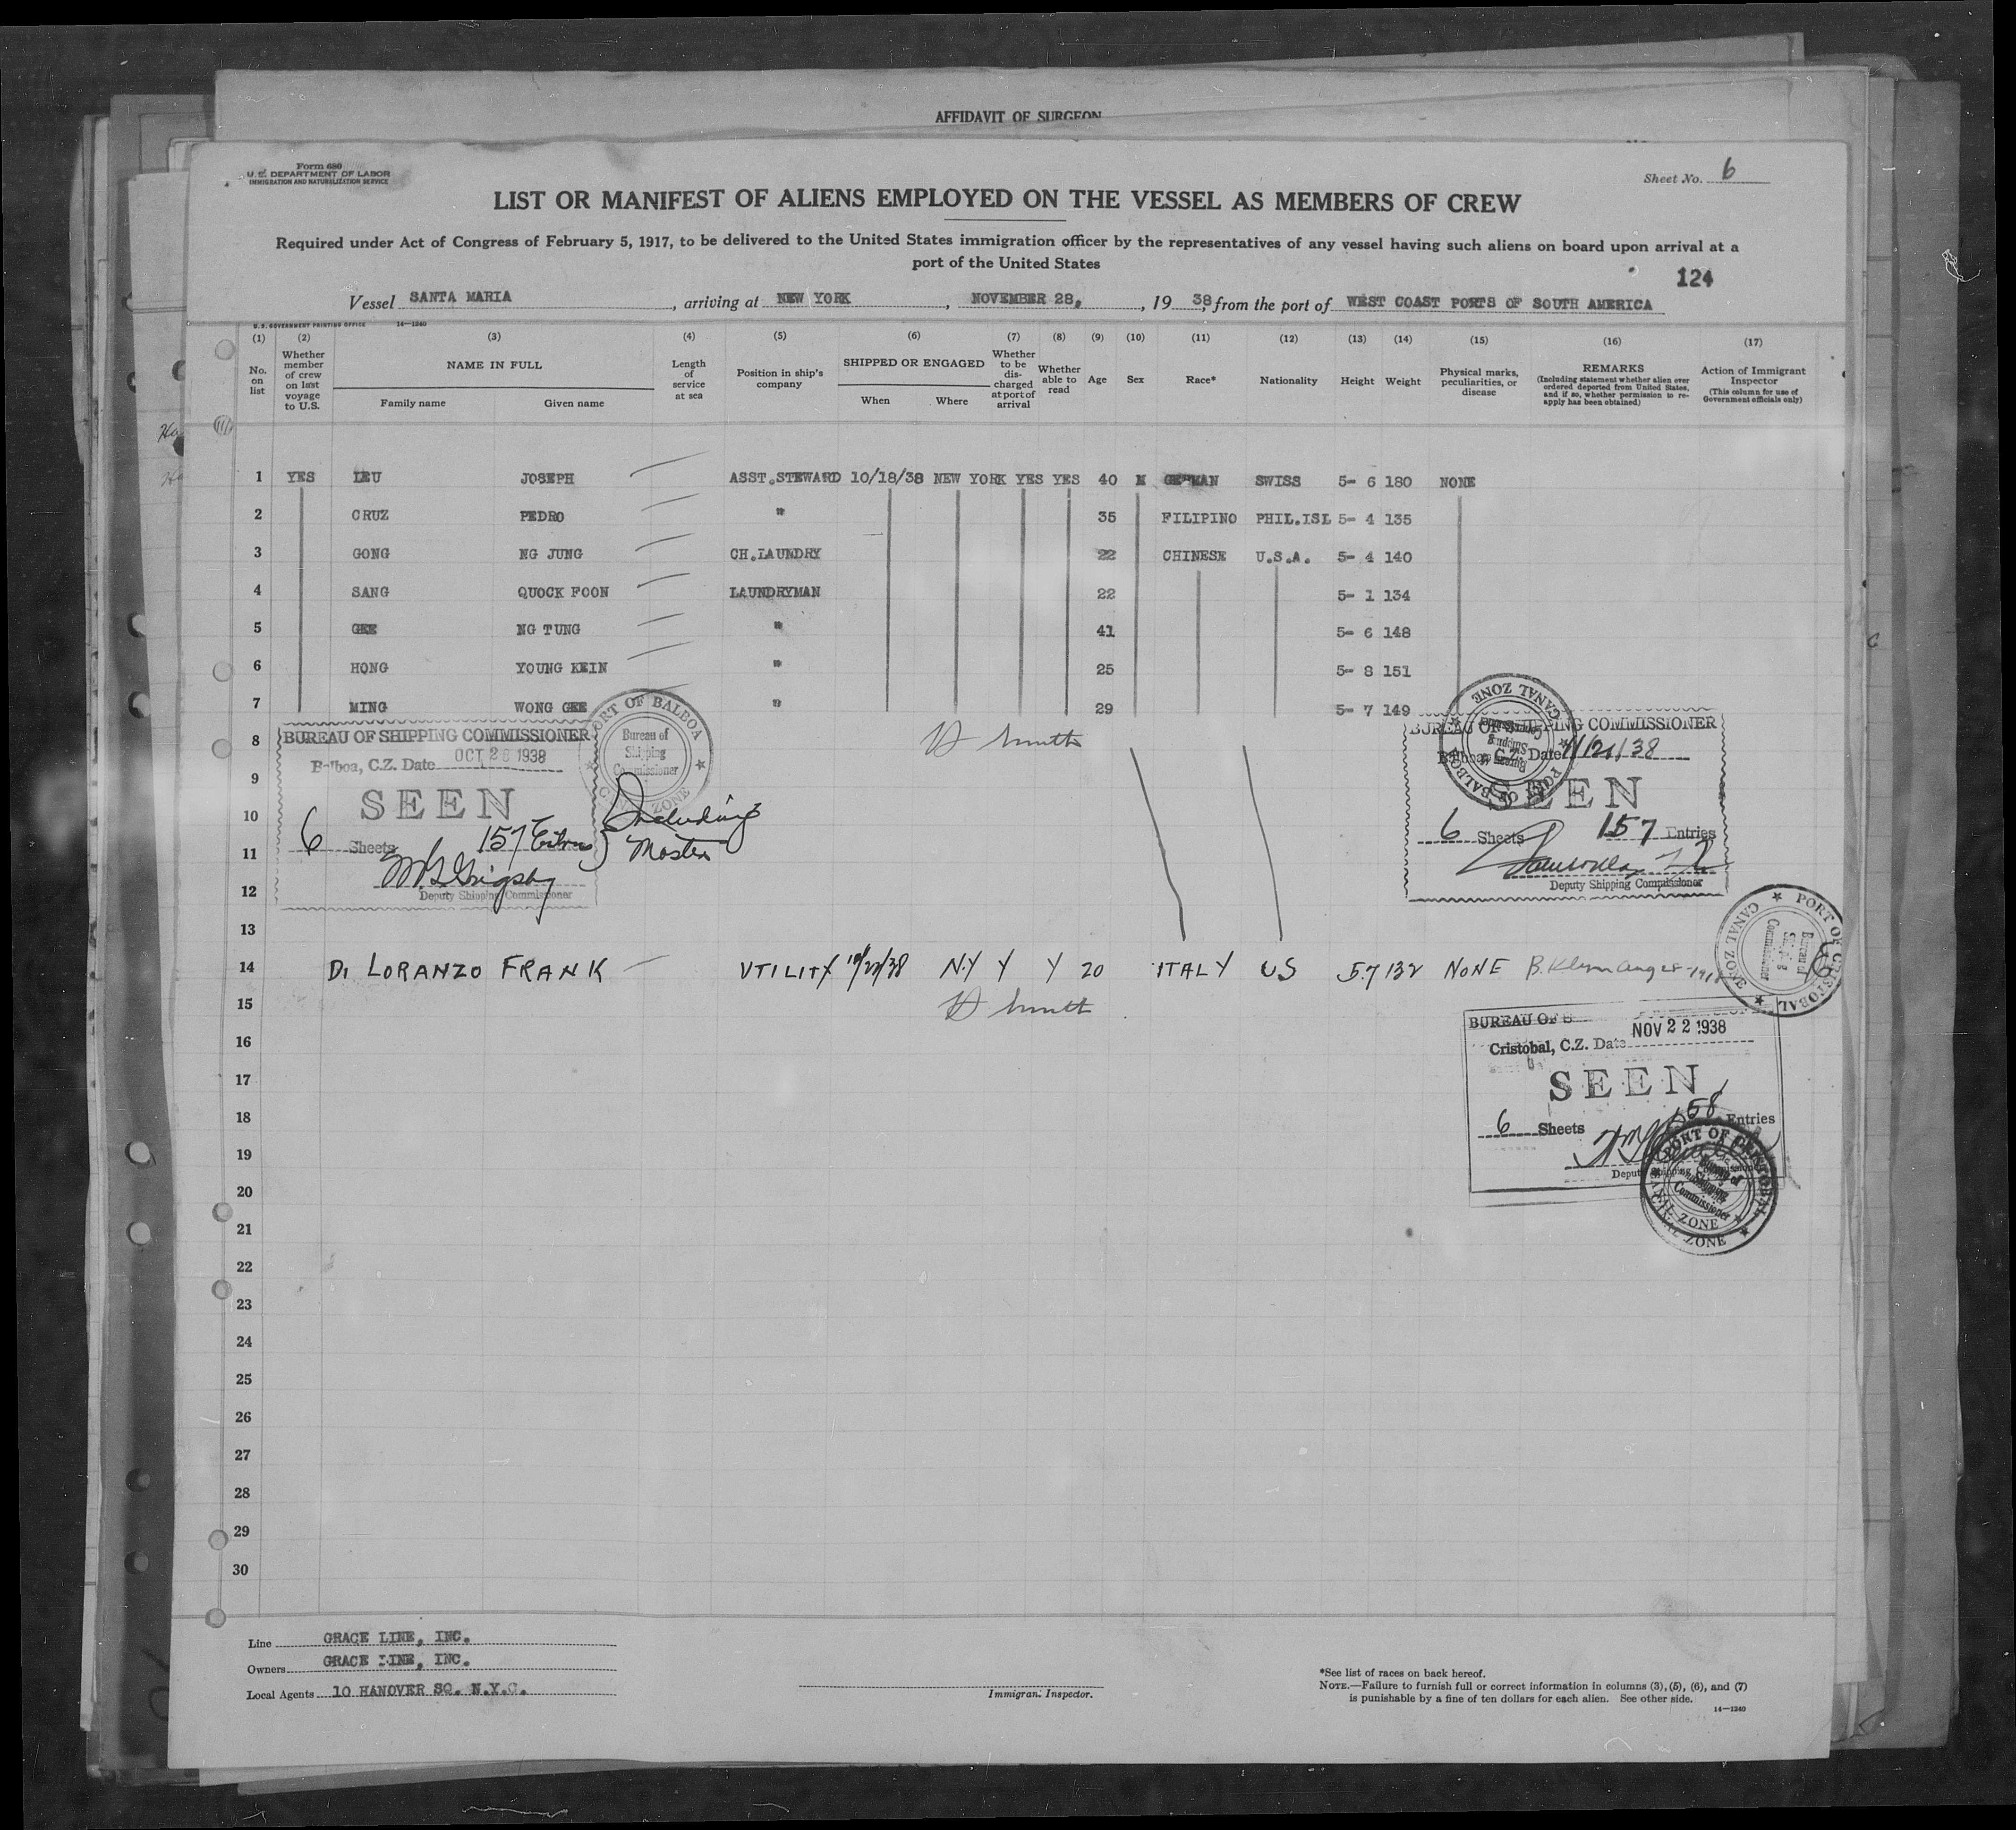 AFFIDAVIT OF SURGEON
Form 680
U. S. DEPARTMENT OF LABOR
IMMIGRATION AND NATURALIZATION SERVICE
Sheet No. 6
LIST OR MANIFEST OF ALIENS EMPLOYED ON THE VESSEL AS MEMBERS OF CREW
Required under Act of Congress of February 5, 1917, to be delivered to the United States immigration officer by the representatives of any vessel having such aliens on board upon arrival at a
port of the United States
124
Vessel SANTA MARIA, arriving at NEW YORK, NOVEMBER 28, , 19 38, from the port of WEST COAST PORTS OF SOUTH AMERICA
U. S. GOVERNMENT PRINTING OFFICE 14—1240
(1) (2) (3) (4) (5) (6) (7) (8) (9) (10) (11) (12) (13) (14) (15) (16) (17)
No. on list
Whether member of crew on last voyage to U.S.
NAME IN FULL
Family name Given name
Length of service at sea
Position in ship's company
SHIPPED OR ENGAGED
When Where
Whether to be discharged at port of arrival
Whether able to read
Age
Sex
Race*
Nationality
Height
Weight
Physical marks, peculiarities, or disease
REMARKS
(Including statement whether alien ever ordered deported from United States, and if so, whether permission to reapply has been obtained)
Action of Immigrant Inspector
(This column for use of Government officials only)
1 YES LEU JOSEPH ASST.STEWARD 10/18/38 NEW YORK YES YES 40 M GERMAN SWISS 5- 6 180 NONE
2 CRUZ PEDRO " 35 FILIPINO PHIL.ISL 5- 4 135
3 GONG NG JUNG CH.LAUNDRY 22 CHINESE U.S.A. 5- 4 140
4 SANG QUOCK FOON LAUNDRYMAN 22 5- 1 134
5 GEE NG TUNG " 41 5- 6 148
6 HONG YOUNG KEIN " 25 5- 8 151
7 MING WONG GEE " 29 5- 7 149
8
9
10
11
12
13
BUREAU OF SHIPPING COMMISSIONER
Balboa, C.Z. Date OCT 26 1938
SEEN
6 Sheets 157 Entries } Including Master
Deputy Shipping Commissioner
PORT OF BALBOA
Bureau of
Shipping
Commissioner
CANAL ZONE
BUREAU OF SHIPPING COMMISSIONER
Balboa, C.Z. Date 11/21/38
SEEN
6 Sheets 157 Entries
Deputy Shipping Commissioner
PORT OF BALBOA
CANAL ZONE
14 DI LORANZO FRANK UTILITY 10/22/38 N.Y Y Y 20 ITALY US 5.7 132 NONE
PORT OF CRISTOBAL
Bureau of
Commissioner
CANAL ZONE
15
16
17
18
19
20
21
22
23
24
25
26
27
28
29
30
BUREAU OF S
Cristobal, C.Z. Date NOV 22 1938
SEEN
6 Sheets 158 Entries
Deputy Shipping Commissioner
PORT OF CRISTOBAL
Bureau of
Shipping
Commissioner
CANAL ZONE
Line GRACE LINE, INC.
Owners GRACE LINE, INC.
Local Agents 10 HANOVER SQ. N.Y.C.
Immigrant Inspector.
*See list of races on back hereof.
NOTE.—Failure to furnish full or correct information in columns (3), (5), (6), and (7)
is punishable by a fine of ten dollars for each alien. See other side.
14—1240